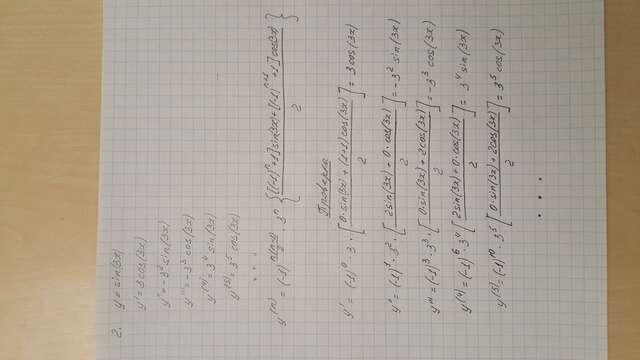 2. y = sin(3x)
y' = 3cos(3x)
y'' = -3² sin(3x)
y''' = -3³ cos(3x)
y⁽⁴⁾ = 3⁴ sin(3x)
y⁽⁵⁾ = 3⁵ cos(3x)
. . .
y⁽ⁿ⁾ = (-1)^(n(n-1)/2) · 3ⁿ {([(-1)ⁿ+1] sin(3x) + [(-1)ⁿ⁺¹+1] cos(3x))/2}
Проверка
y' = (-1)⁰ · 3 · [(0·sin(3x) + (1+1)cos(3x))/2] = 3cos(3x)
y'' = (-1)¹ · 3² · [(2sin(3x) + 0·cos(3x))/2] = -3² sin(3x)
y''' = (-1)³ · 3³ · [(0·sin(3x) + 2cos(3x))/2] = -3³ cos(3x)
y⁽⁴⁾ = (-1)⁶ · 3⁴ [(2sin(3x) + 0·cos(3x))/2] = 3⁴ sin(3x)
y⁽⁵⁾ = (-1)¹⁰ · 3⁵ [(0·sin(3x) + 2cos(3x))/2] = 3⁵ cos(3x)
. . . .